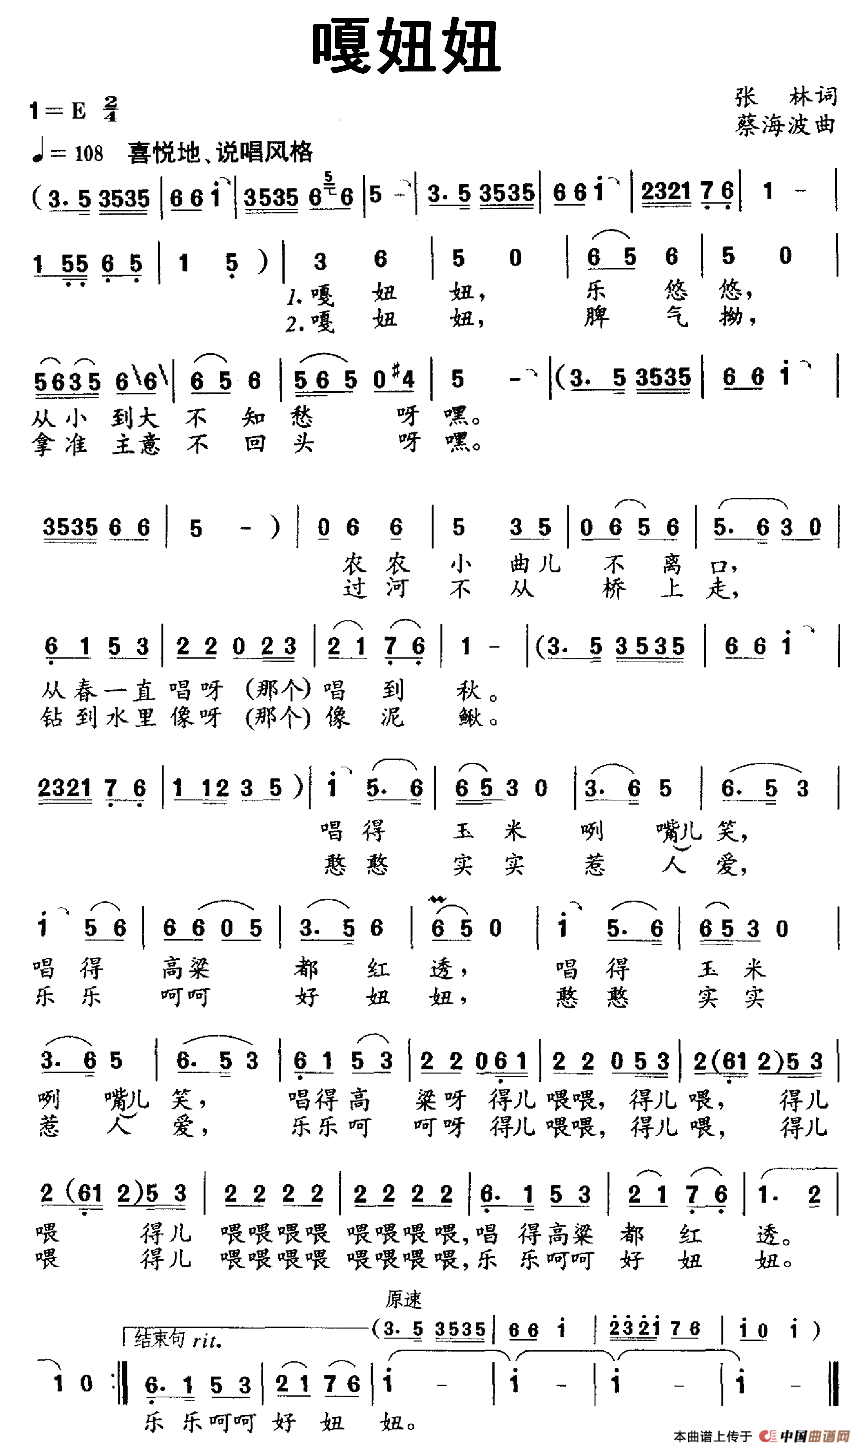 嘎妞妞
1=E 2/4
张 林词
蔡海波曲
♩=108 喜悦地、说唱风格
(3. 5 3535 | 6 6 i | 3535 6 5 6 | 5 - | 3. 5 3535 | 6 6 i | 2321 7 6 | 1 - |
1 55 6 5 | 1 5 ) | 3 6 | 5 0 | 6 5 6 | 5 0 |
1.嘎 妞 妞, 乐 悠 悠,
2.嘎 妞 妞, 脾 气 拗,
5635 6 6 | 6 5 6 | 5 6 5 0 #4 | 5 - | (3. 5 3535 | 6 6 i |
从小 到大 不 知 愁 呀 嘿。
拿准 主意 不 回 头 呀 嘿。
3535 6 6 | 5 - ) | 0 6 6 | 5 3 5 | 0 6 5 6 | 5. 6 3 0 |
农 农 小 曲儿 不 离 口,
过 河 不 从 桥 上 走,
6 1 5 3 | 2 2 0 2 3 | 2 1 7 6 | 1 - | (3. 5 3535 | 6 6 i |
从春一直唱呀(那个)唱 到 秋。
钻到水里像呀(那个)像 泥 鳅。
2321 7 6 | 1 12 3 5 ) | i 5. 6 | 6 5 3 0 | 3. 6 5 | 6. 5 3 |
唱 得 玉 米 咧 嘴儿 笑,
憨 憨 实 实 惹 人 爱,
i 5 6 | 6 6 0 5 | 3. 5 6 | 6 5 0 | i 5. 6 | 6 5 3 0 |
唱 得 高粱 都 红 透, 唱 得 玉 米
乐 乐 呵呵 好 妞 妞, 憨 憨 实 实
3. 6 5 | 6. 5 3 | 6 1 5 3 | 2 2 0 6 1 | 2 2 0 5 3 | 2 (61 2) 5 3 |
咧 嘴儿 笑, 唱得高 粱呀 得儿 喂喂, 得儿 喂, 得儿
惹 人 爱, 乐乐呵 呵呀 得儿 喂喂, 得儿 喂, 得儿
2 (61 2) 5 3 | 2 2 2 2 | 2 2 2 2 | 6. 1 5 3 | 2 1 7 6 | 1. 2 |
喂 得儿 喂喂喂喂 喂喂喂喂,唱 得高粱 都 红 透。
喂 得儿 喂喂喂喂 喂喂喂喂,乐 乐呵呵 好 妞 妞。
原速
结束句 rit. (3. 5 3535 | 6 6 i | 2321 7 6 | i 0 i )
1 0 :‖ 6. 1 5 3 | 2 1 7 6 | i - | i - | i - | i - ‖
乐 乐呵呵 好 妞 妞。
本曲谱上传于 中国曲谱网